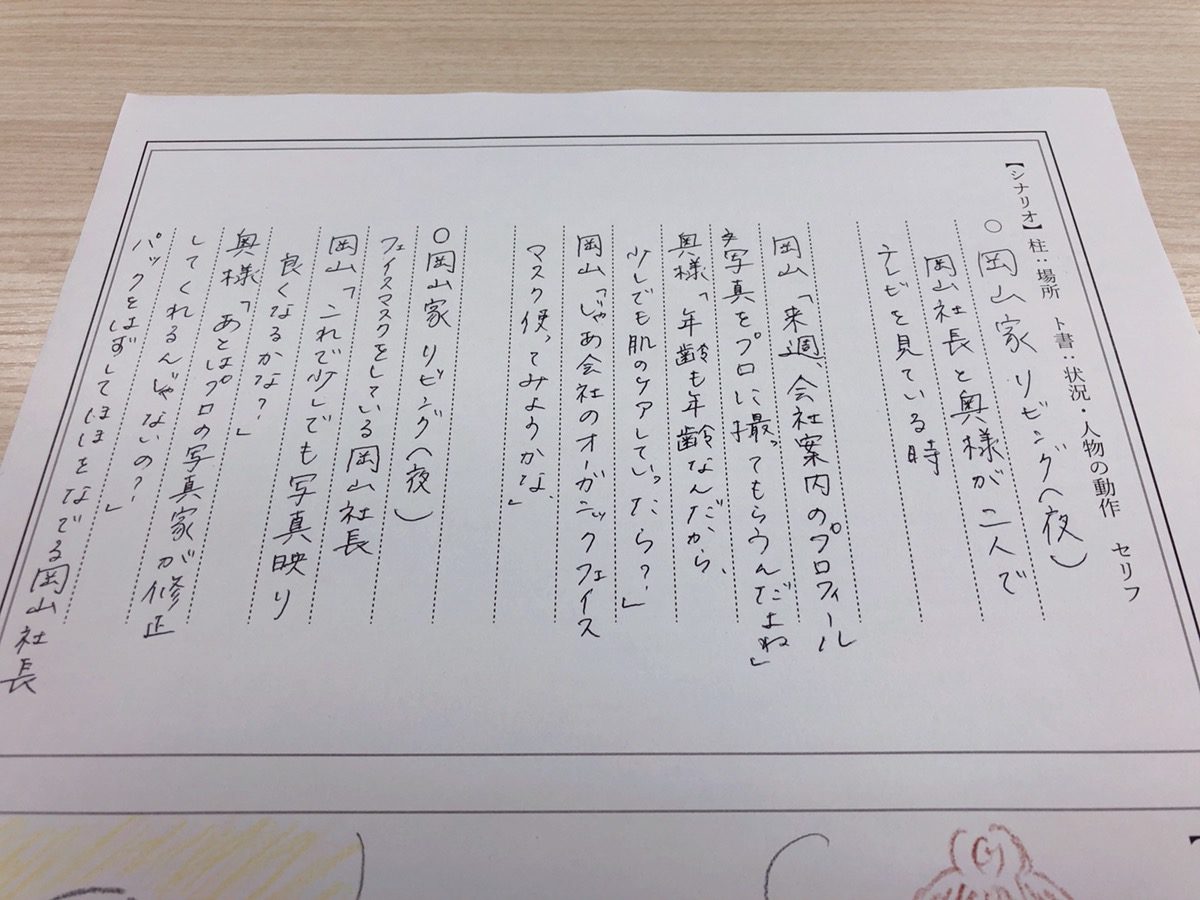 【シナリオ】 柱：場所 ト書：状況・人物の動作 セリフ
○ 岡山家 リビング（夜）
岡山社長と奥様が二人で
テレビを見ている時
岡山「来週、会社案内のプロフィール
写真をプロに撮ってもらうんだよね」
奥様「年齢も年齢なんだから、
少しでも肌のケアしていったら？」
岡山「じゃあ会社のオーガニックフェイス
マスク使ってみようかな」
○岡山家 リビング（夜）
フェイスマスクをしている岡山社長
岡山「これで少しでも写真映り
良くなるかな？」
奥様「あとはプロの写真家が修正
してくれるんじゃないの？」
パックをはずしてほほをなでる岡山社長